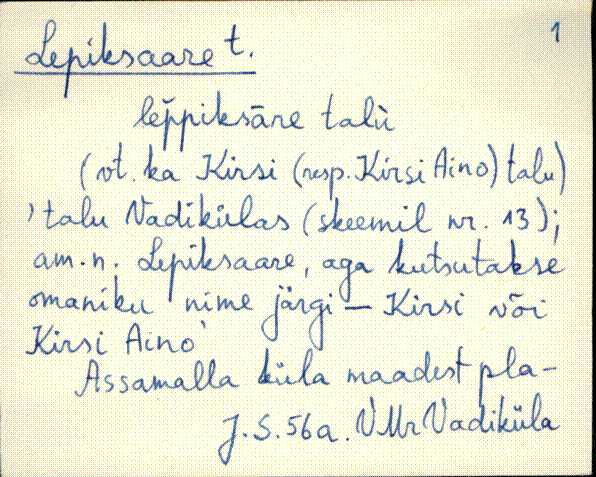 1
Lepiksaare t.
lep̌piksāre talù
(vt. ka Kirsi (resp. Kirsi Aino) talu)
'talu Vadikülas (skeemil nr. 13);
am.n. Lepiksaare, aga kutsutakse
omaniku nime järgi — Kirsi või
Kirsi Aino'
Assamalla küla maadest pla-
J.S. 56a. VMr Vadiküla